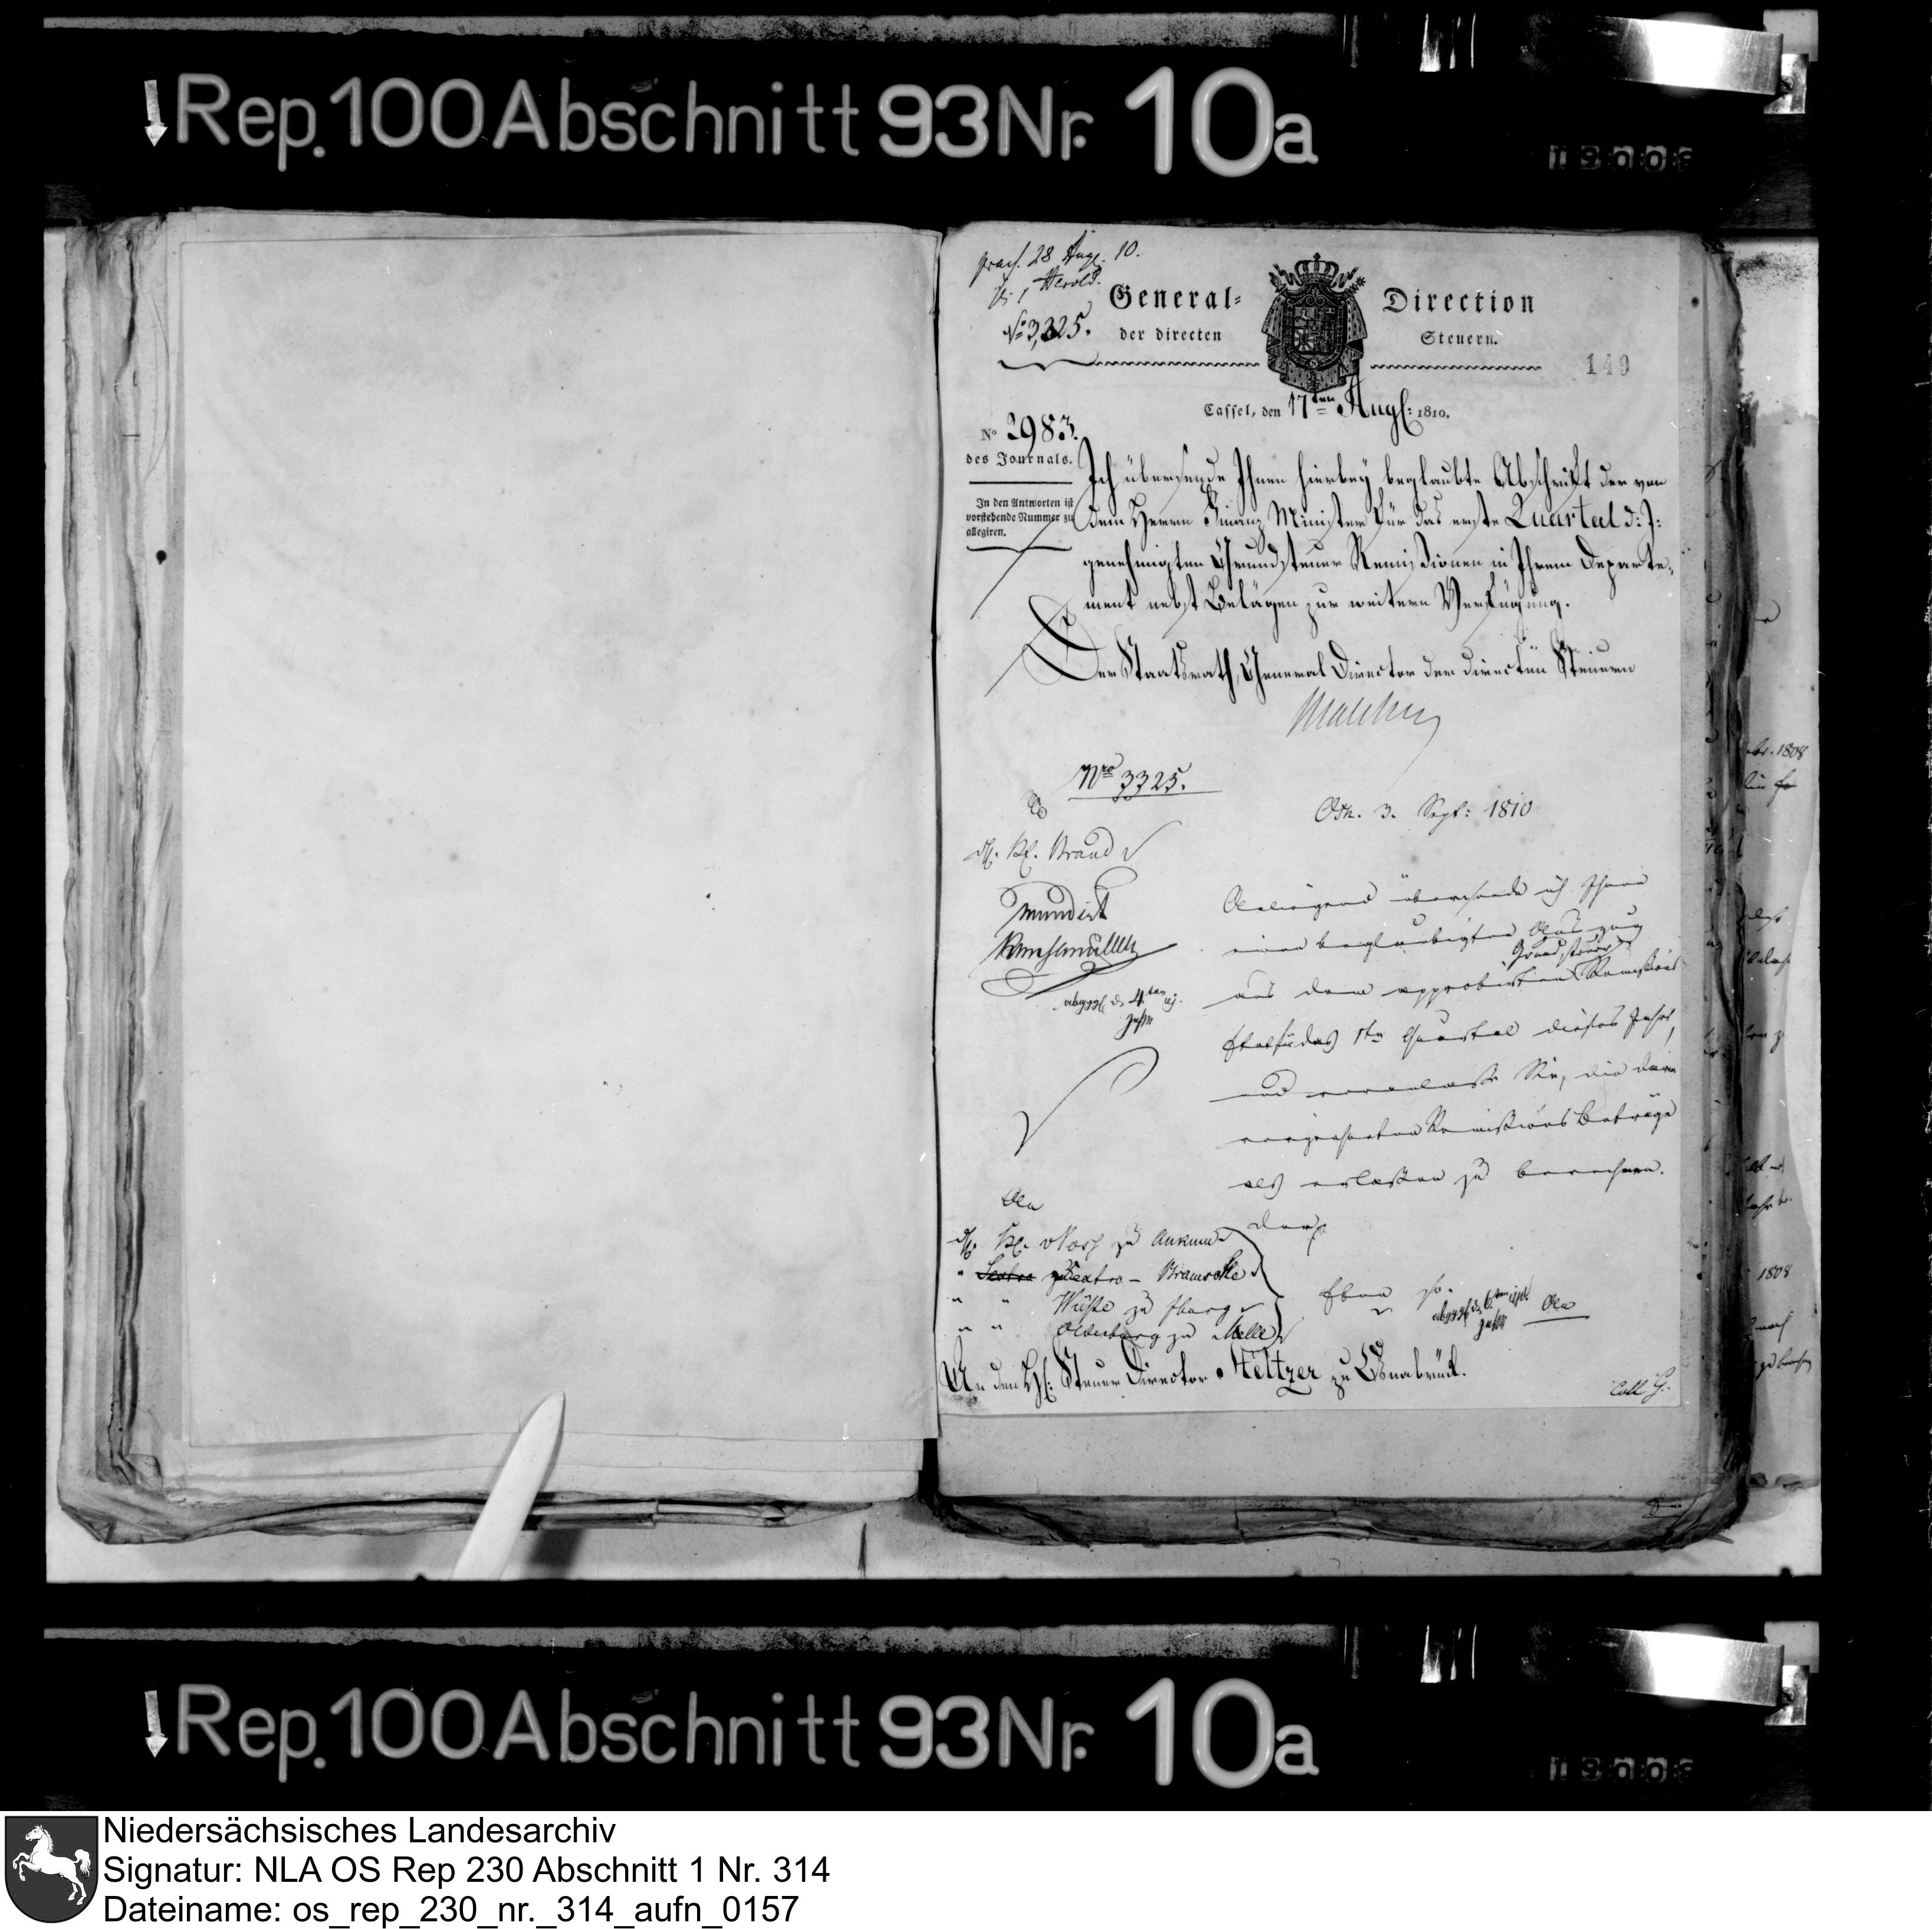 Rep. 100 Abschnitt 93 Nr. 10a
praes. 28 Aug. 10.
Herold.
No 3,325.
General- Direction
der directen Steuern.
149
Cassel, den 17ten Aug: 1810.
No 2983.
des Journals.
In den Antworten ist
vorstehende Nummer zu
allegiren.
Ich übersende Ihnen hierbey beglaubte Abschrift der von
dem Herrn Finanz Minister für das erste Quartal d: J:
genehmigten Grundsteuer Remißionen in Ihrem Departe-
ment nebst Belägen zur weitern Verfügung.
Der Staatsrath, General Director der directen Steuern
Malchus
Nro 3325.
Osn. 3. Sept: 1810
Brand
mundirt
Anliegend übersende ich Ihnen
einen beglaubigten Auszug
aus dem approbirten Grundsteuer Remißions
Etat für das 1te Quartal dieses Jahrs,
und veranlaße Sie, die darin
Remißions Beträge
als erlaßen zu berechnen.
abggl d 4ten ej.
An
zu Ankum
Sextro Sextro - Bramsche
" " Wüste zu Iburg
" " Oldenburg zu Melle
Eben so.
An den H: Steuer Director Meltzer zu Osnabrück.
Coll G.
Rep. 100 Abschnitt 93 Nr. 10a
Niedersächsisches Landesarchiv
Signatur: NLA OS Rep 230 Abschnitt 1 Nr. 314
Dateiname: os_rep_230_nr._314_aufn_0157